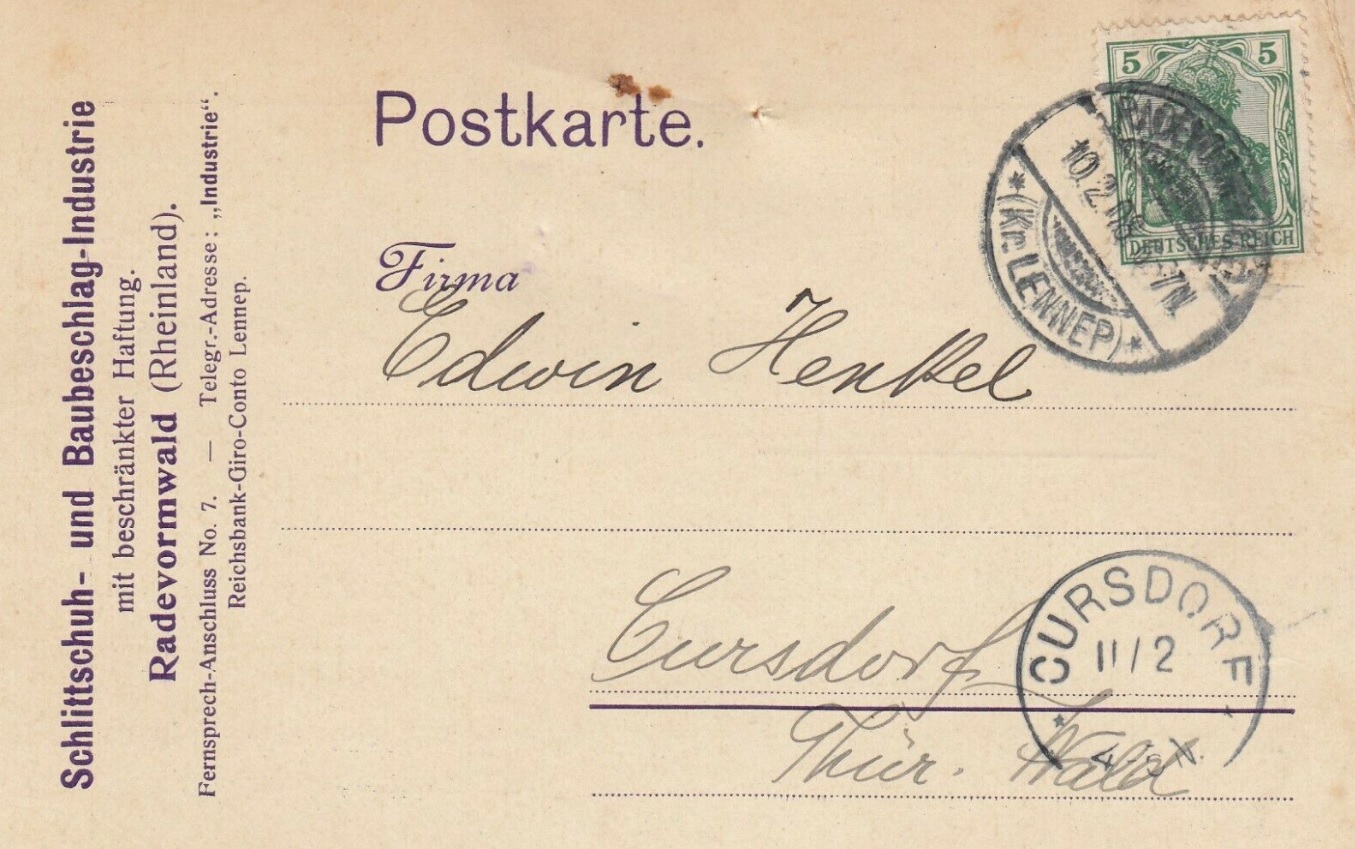 Schlittschuh- und Baubeschlag-Industrie
mit beschränkter Haftung.
Radevormwald (Rheinland).
Fernsprech-Anschluss No. 7. — Telegr.-Adresse: „Industrie“.
Reichsbank-Giro-Conto Lennep.
Postkarte.
5 5
DEUTSCHES REICH
10.2.
7N.
* (Kr. LENNEP) *
Firma
Edwin Henkel
Cursdorf
Thür. Wald
CURSDORF
11/2